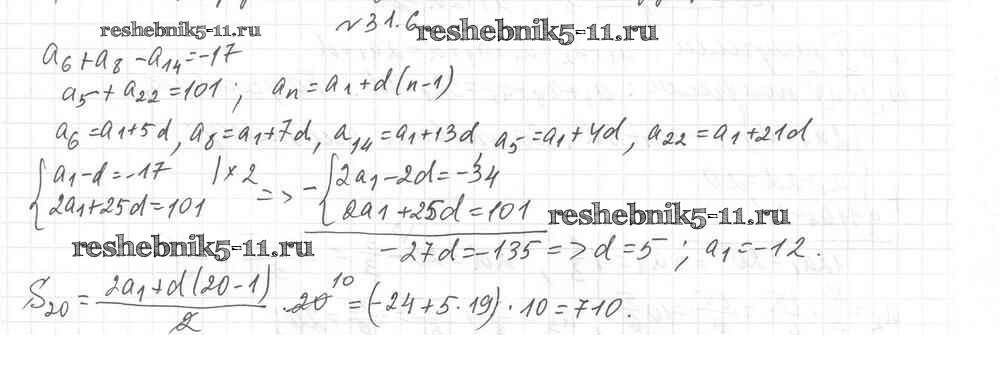 reshebnik5-11.ru №31.6 reshebnik5-11.ru
a₆ + a₈ - a₁₄ = -17
a₅ + a₂₂ = 101 ; aₙ = a₁ + d(n-1)
a₆ = a₁+5d, a₈ = a₁+7d, a₁₄ = a₁+13d, a₅ = a₁+4d, a₂₂ = a₁+21d
{ a₁-d = -17 |×2 => - { 2a₁-2d = -34
{ 2a₁+25d = 101 { 2a₁+25d = 101 reshebnik5-11.ru
reshebnik5-11.ru -27d = -135 => d = 5 ; a₁ = -12.
S₂₀ = (2a₁+d(20-1))/2 · 20 10 = (-24+5·19)·10 = 710.